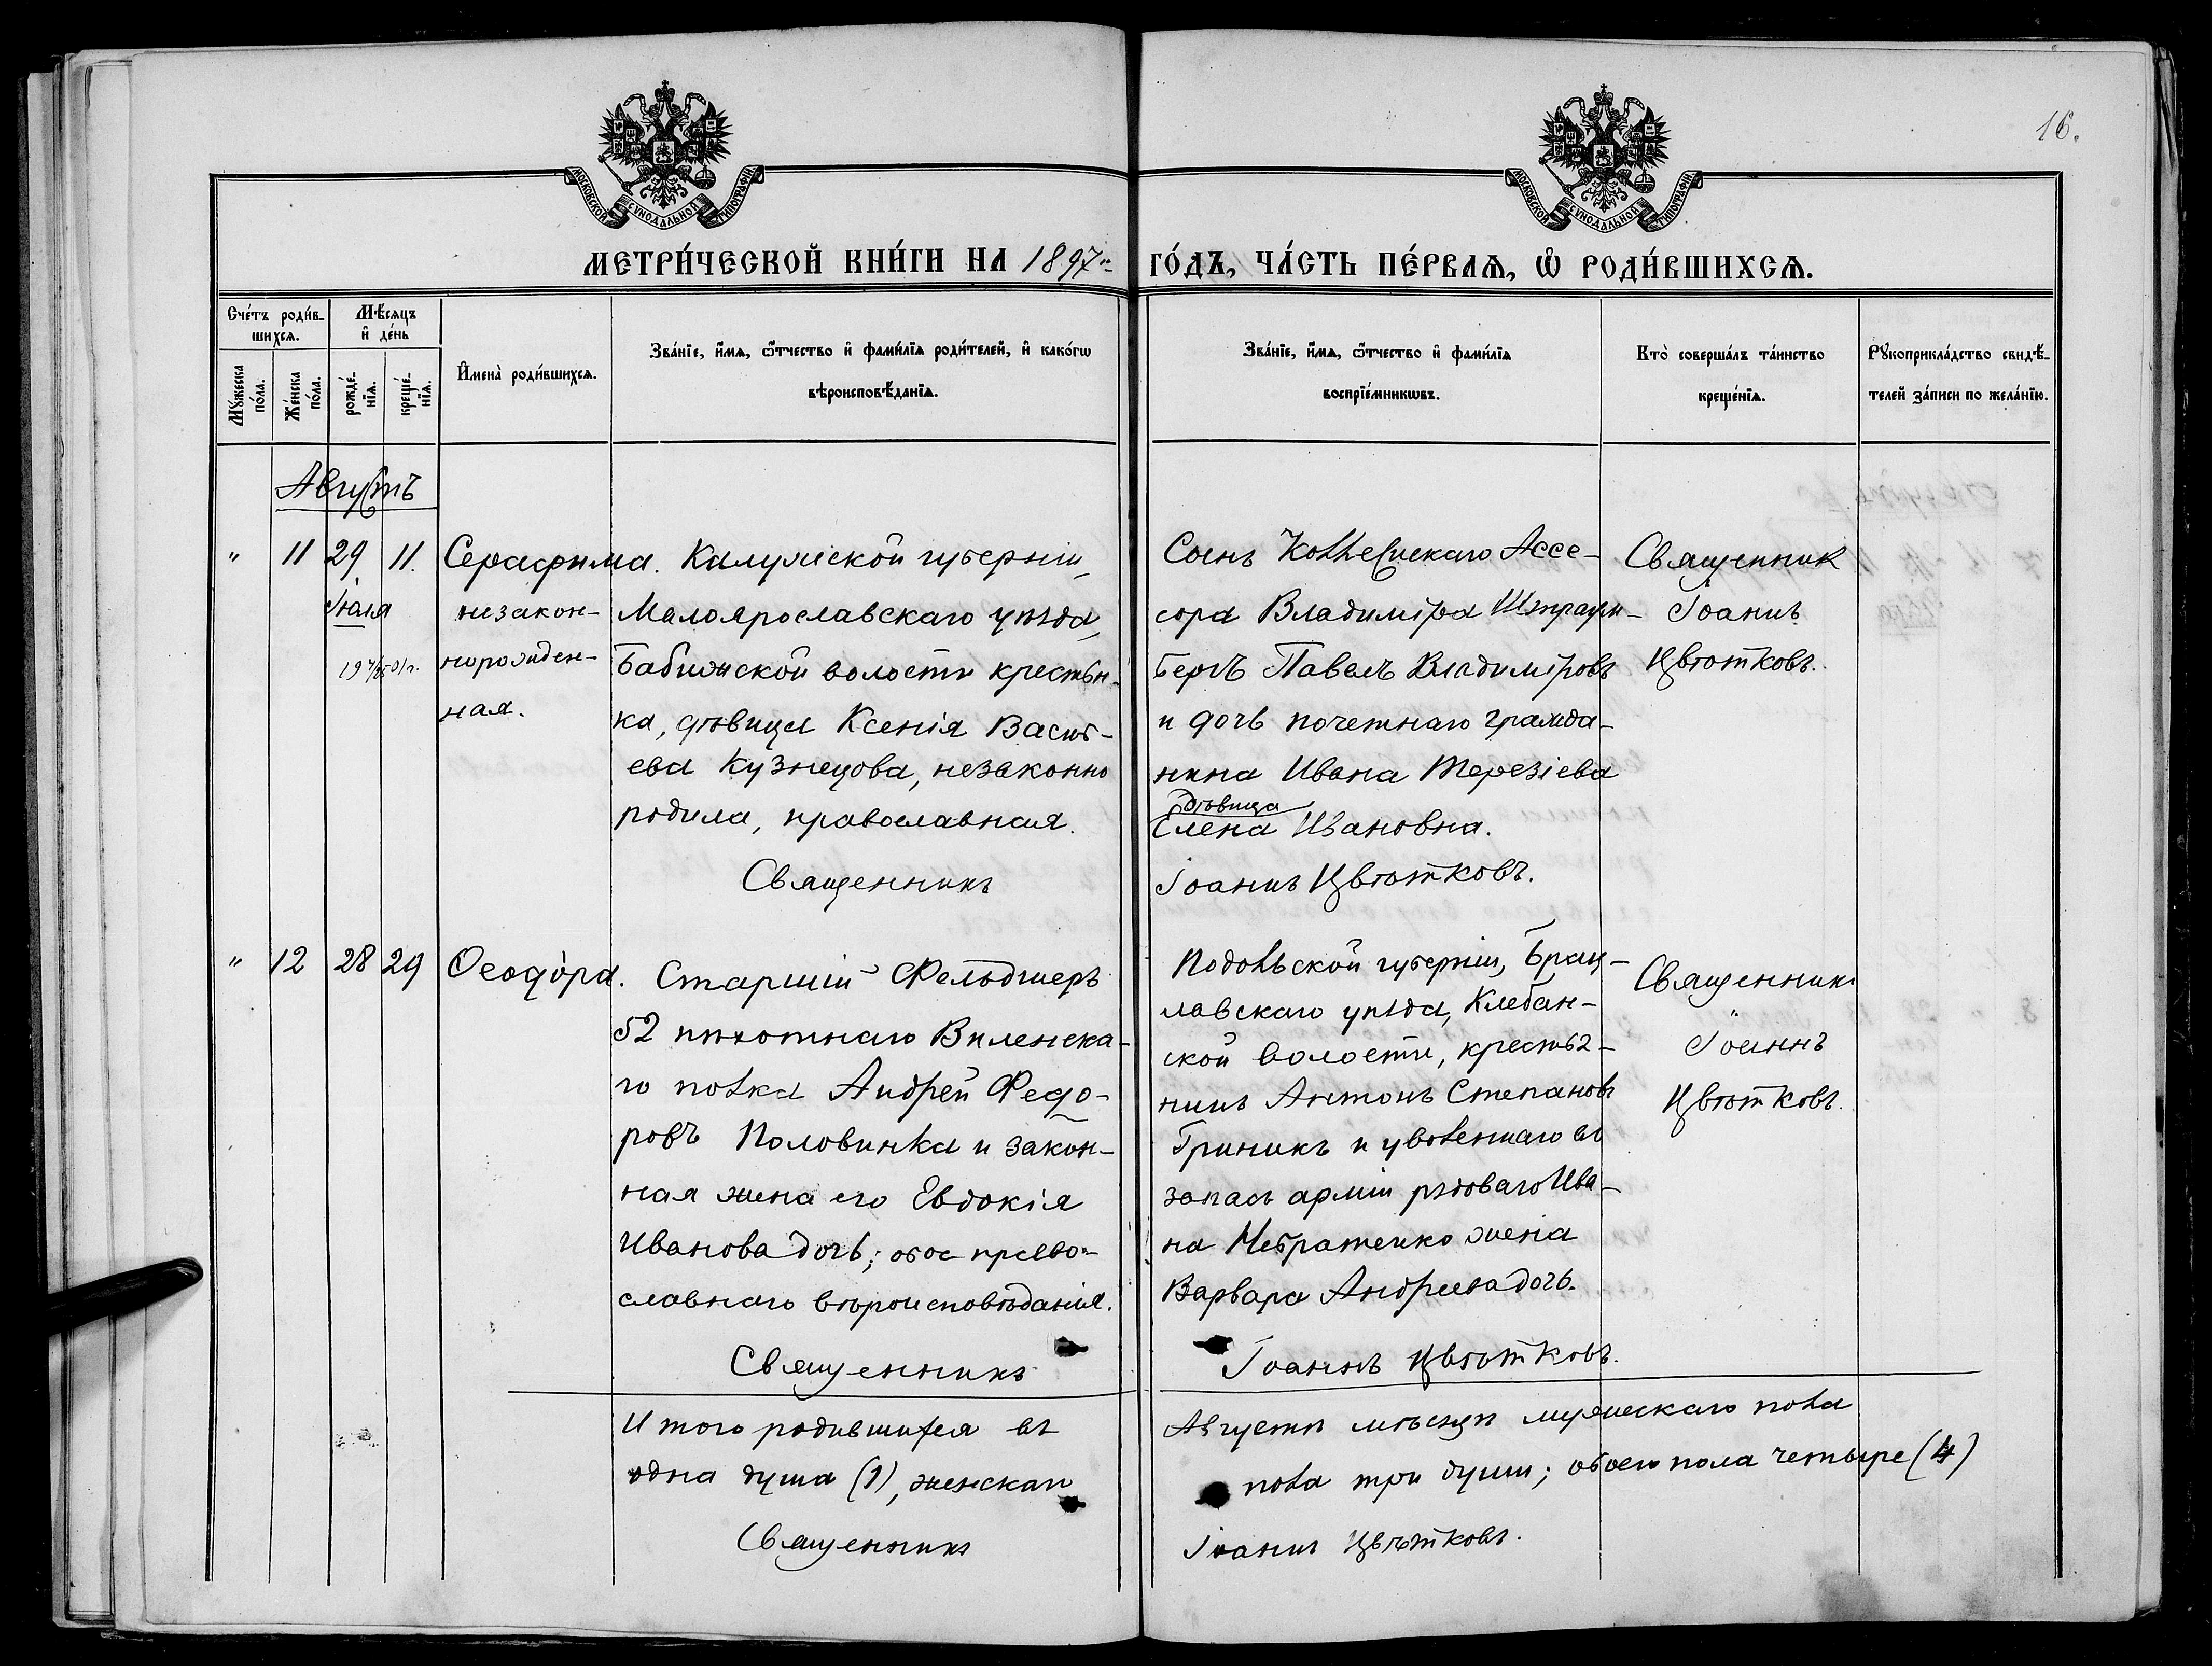 16.
МОСКОВСКОЙ СѴНОДАЛЬНОЙ ТИПОГРАФІИ
МОСКОВСКОЙ СѴНОДАЛЬНОЙ ТИПОГРАФІИ
МЕТРИ́ЧЕСКОЙ КНИ́ГИ НА 1897й ГО́ДЪ, ЧА́СТЬ ПЕ́РВАѦ, Ѽ РОДИ́ВШИХСѦ.
Сче́тъ роди́в-
шихсѧ.
Мѣ́сѧцъ
и҆ де́нь
Мꙋ́жеска
по́ла.
Же́нска
по́ла.
рожде́-
нїѧ.
креще́-
нїѧ.
И҆мена̀ роди́вшихсѧ.
Зва́нїе, и҆́мѧ, ѻ҆́тчество и҆ фами́лїѧ роди́телей, и҆ како́гѡ
вѣроисповѣ́данїѧ.
Зва́нїе, и҆́мѧ, ѻ҆́тчество и҆ фами́лїѧ
воспрїе́мникѡвъ.
Кто̀ соверша́лъ та́инство
креще́нїѧ.
Рꙋкоприкла́дство свидѣ́-
телей за́писи по жела́нїю.
Августъ
" 11 29 11. Серафима.
Іюля
незакон-
норожден-
ная.
Калужской губерніи,
Малоярославскаго уѣзда,
волости крестьян-
ка, дѣвица Ксенія Василь-
ева Кузнецова, незаконно
родила, православная.
Священникъ
Сынъ Коллежскаго Ассе-
сора Владиміра Штраум-
бергъ Павелъ Владиміровъ
и дочь почетнаго гражда-
нина Ивана Терезіева
дѣвица
Елена Ивановна.
Іоаннъ Цвѣтковъ.
Священникъ
Іоаннъ
Цвѣтковъ.
" 12 28 29 Ѳеодора.
Старшій Фельдшеръ
52 пѣхотнаго Виленска-
го полка Андрей Федо-
ровъ Половинка и закон-
ная жена его Евдокія
Иванова дочь; обое право-
славнаго вѣроисповѣданія.
Священникъ
Подольской губерніи, Брац-
лавскаго уѣзда, Клебан-
ской волости, крестья-
нинъ Антонъ Степановъ
Гриникъ и уволеннаго въ
запасъ арміи рядоваго Ива-
на жена
Варвара Андреева дочь.
Іоаннъ Цвѣтковъ.
Священникъ
Іоаннъ
Цвѣтковъ.
Итого родившихся въ Августѣ мѣсяцѣ мужескаго пола
одна душа (1), женскаго пола три души; обоего пола четыре (4)
Священникъ Іоаннъ Цвѣтковъ.